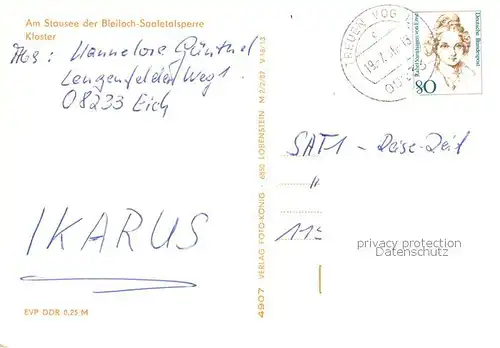 Am Stausee der Bleiloch-Saaletalsperre
Kloster
Abs: Hannelore Günthel
Lengenfelder Weg 1
08233 Eich
IKARUS
EVP DDR 0,25 M
4907 VERLAG FOTO-KÖNIG · 6850 LOBENSTEIN M 2/2/87 V 18/13
TREUEN VOGTL
Deutsche Bundespost
Rahel Varnhagen von Ense
80
SAT1 - Reise-Zeit
privacy protection
Datenschutz